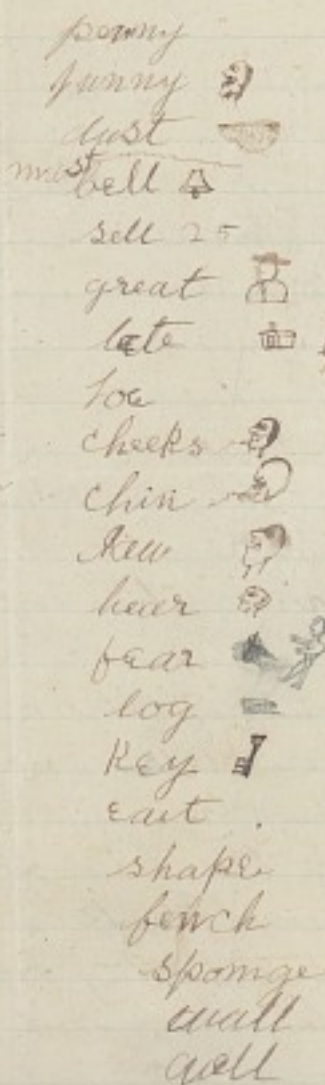 penny
funny
dust
must
bell
sell 25
great
late
Toe
cheeks
chin
hear
fear
log
Key
east
shape
fench
sponge
wall